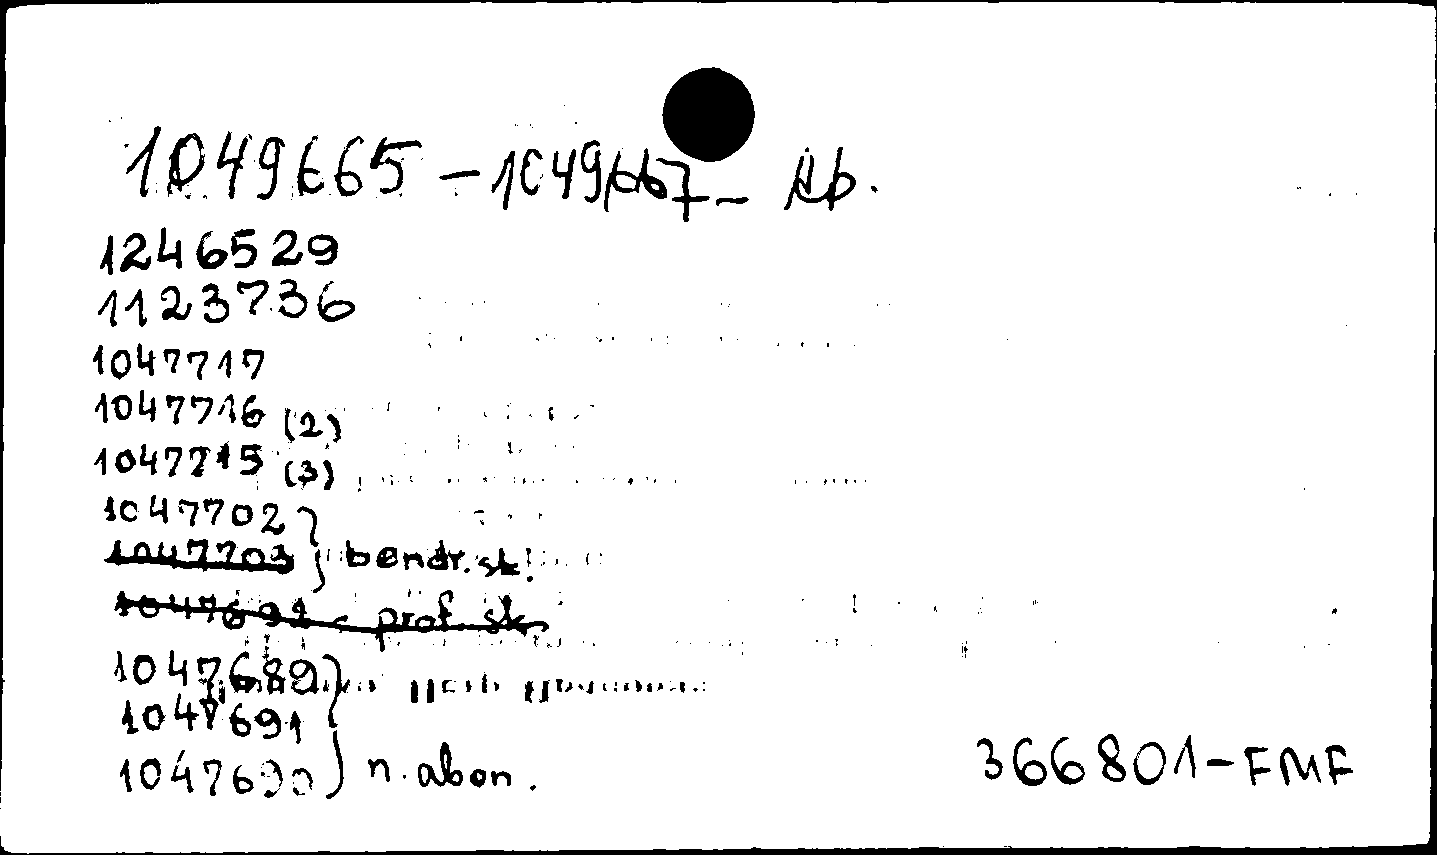 1049665 – 1049667 – Ab.
1246529
1123736
1047717
1047716 (2)
1047715 (3)
1047702
1047703 } bendr. sk.
1047692 - prof. sk.
1047689
1047691
1047690 } n. abon.
366801-FMF